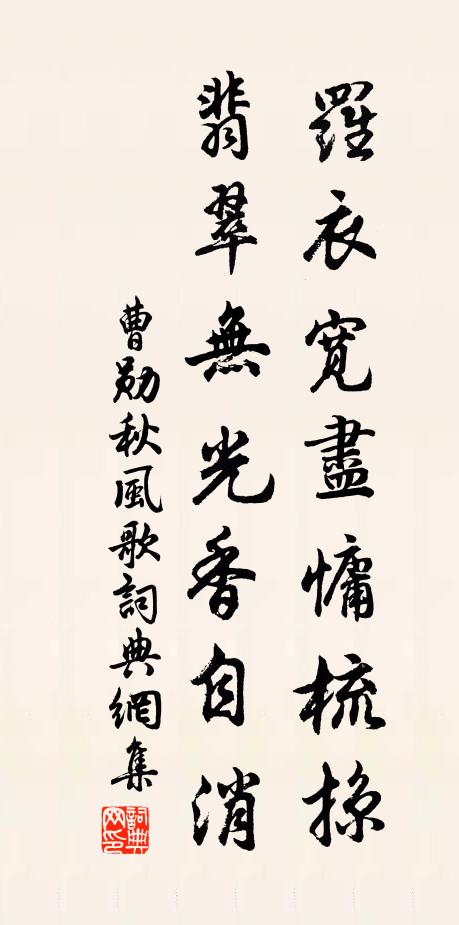 羅衣寬盡慵梳掠
翡翠無光香自消
曹勛秋風歌詞典網集
詞典網印